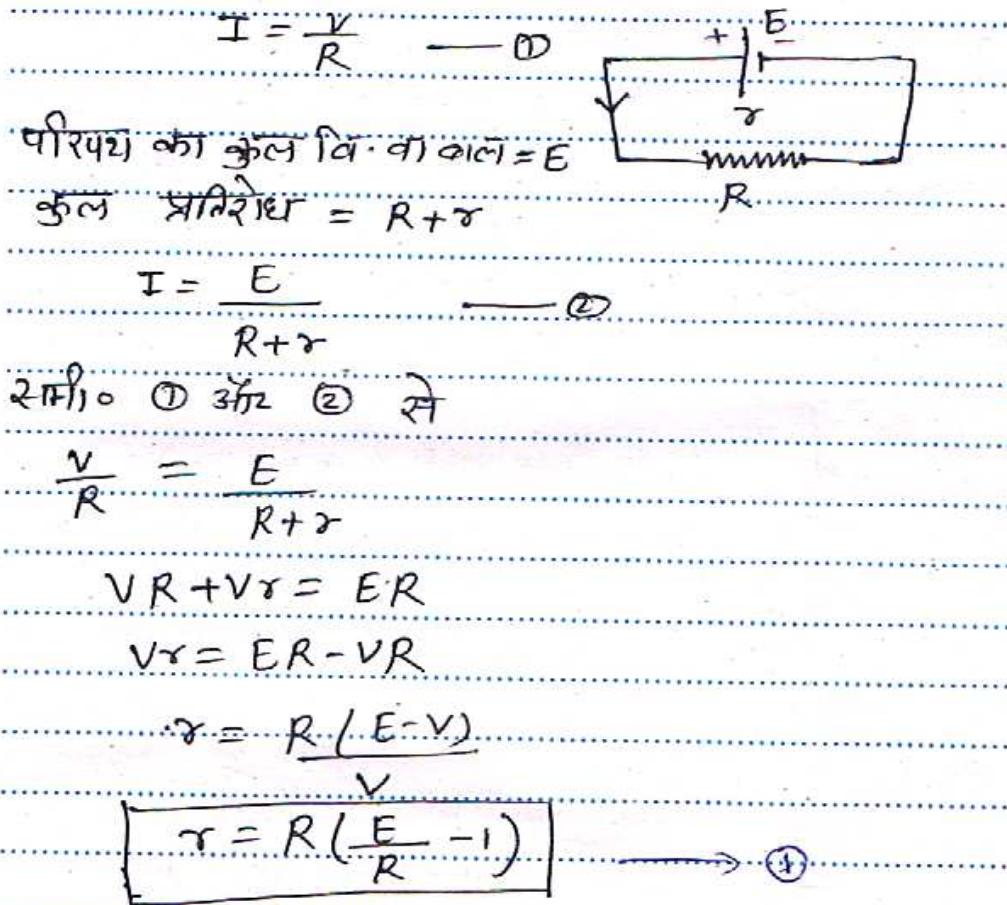 I = V/R —— ①
+ E
r
R
परिपथ का कुल वि. वा बल = E
कुल प्रतिरोध = R+r
I = E/(R+r) —— ②
समी० ① और ② से
V/R = E/(R+r)
VR+Vr = ER
Vr = ER-VR
r = R(E-V)/V
r = R(E/R -1) ⟶